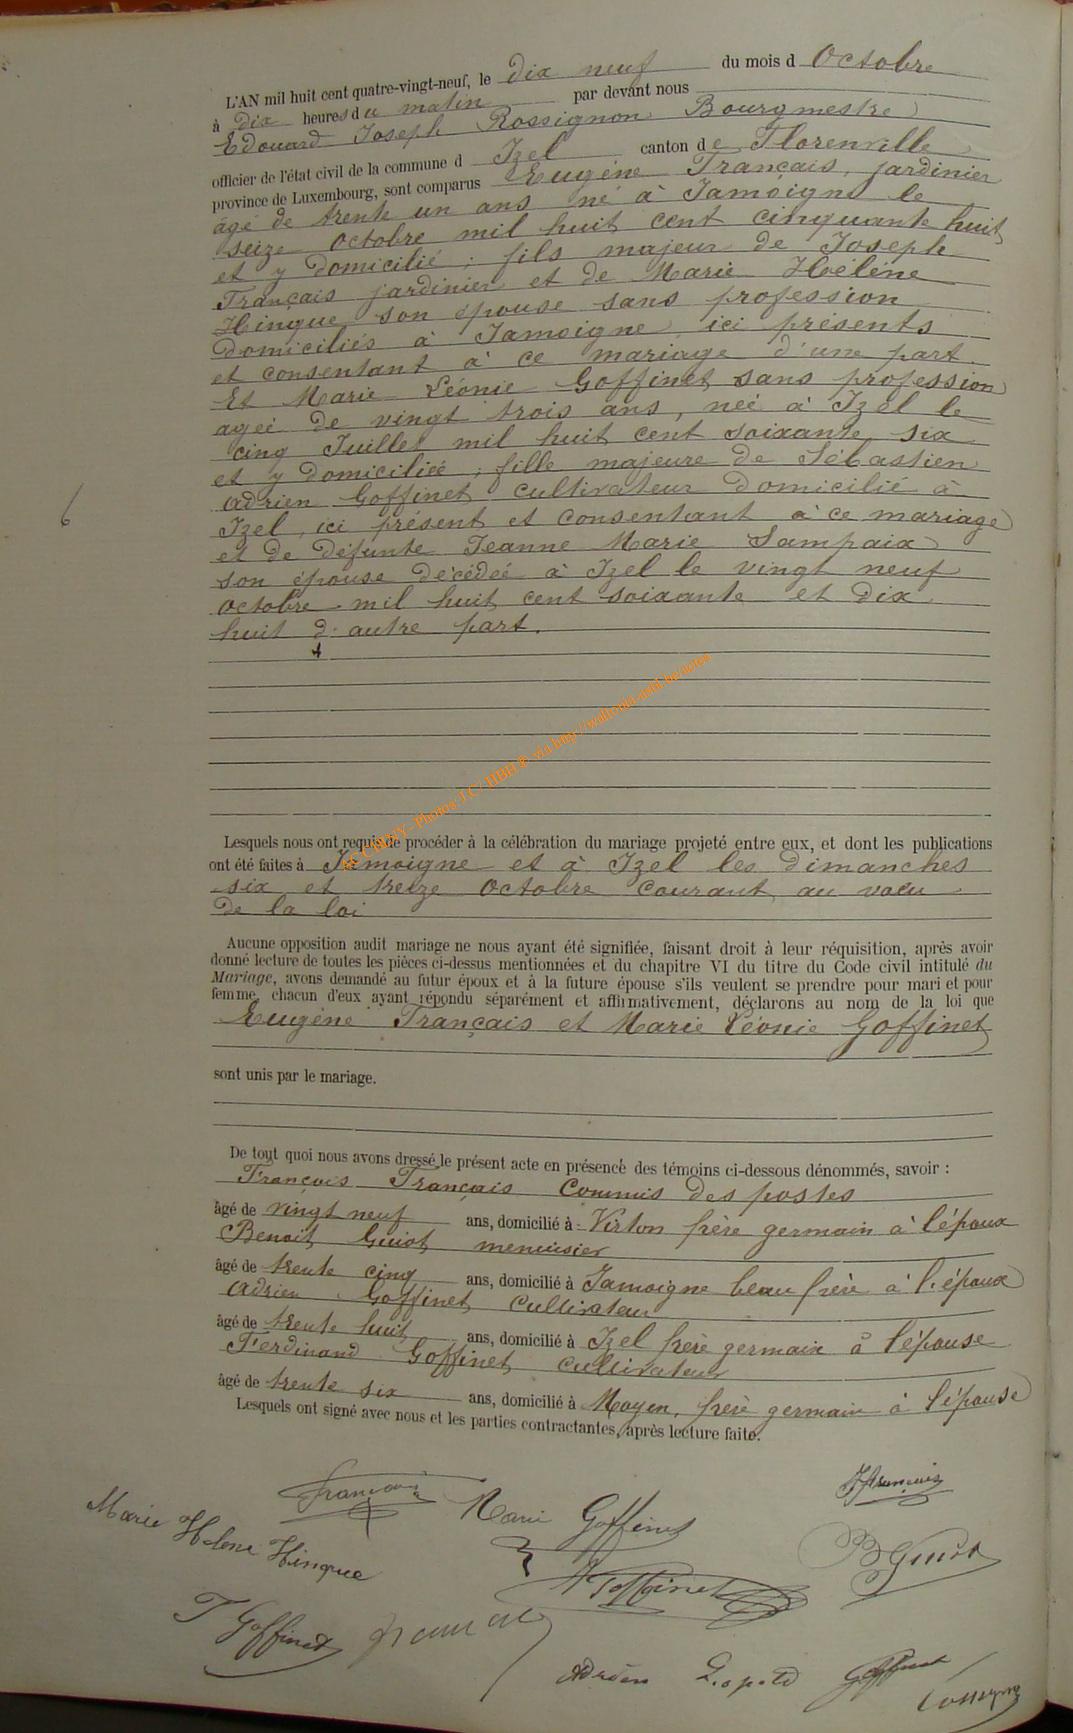 L'AN mil huit cent quatre-vingt-neuf, le dix neuf du mois d Octobre
à dix heures du matin par devant nous
Edouard Joseph Rossignon Bourgmestre
officier de l'état civil de la commune d Izel canton de Florenville
province de Luxembourg, sont comparus Eugéne Français, jardinier
âgé de trente un ans né à Jamoigne le
seize Octobre mil huit cent cinquante huit
et y domicilié ; fils majeur de Joseph
Français jardinier et de Marie Hélène
Hinque son épouse sans profession
domiciliés à Jamoigne ici présents
et consentant à ce mariage d'une part.
Et Marie Léonie Goffinet sans profession
agée de vingt trois ans, née à Izel le
cinq Juillet mil huit cent soixante six
et y domiciliée ; fille majeure de Sébastien
Adrien Goffinet cultivateur domicilié à
Izel, ici présent et consentant à ce mariage
et de défunte Jeanne Marie Lampaix
son épouse décédée à Izel le vingt neuf
octobre mil huit cent soixante et dix
huit d'autre part.
6
Photos J.C/ HBH P. via http://wallonia-asbl.be/actes
Lesquels nous ont requis de procéder à la célébration du mariage projeté entre eux, et dont les publications
ont été faites à Jamoigne et à Izel les dimanches
six et treize Octobre courant au voeu
de la loi
Aucune opposition audit mariage ne nous ayant été signifiée, faisant droit à leur réquisition, après avoir
donné lecture de toutes les pièces ci-dessus mentionnées et du chapitre VI du titre du Code civil intitulé du
Mariage, avons demandé au futur époux et à la future épouse s'ils veulent se prendre pour mari et pour
femme, chacun d'eux ayant répondu séparément et affirmativement, déclarons au nom de la loi que
Eugéne Français et Marie Léonie Goffinet
sont unis par le mariage.
De tout quoi nous avons dressé le présent acte en présence des témoins ci-dessous dénommés, savoir :
François Français Commis des postes
âgé de vingt neuf ans, domicilié à Virton frère germain à l'époux
Benoit Guiot menuisier
âgé de trente cinq ans, domicilié à Jamoigne beau frère à l'époux
Adrien Goffinet cultivateur
âgé de trente huit ans, domicilié à Izel frère germain à l'épouse
Ferdinand Goffinet cultivateur
âgé de trente six ans, domicilié à Moyen, frère germain à l'épouse
Lesquels ont signé avec nous et les parties contractantes, après lecture faite.
français Marie Goffinet Jfrançais
Marie Helene Hinque
A Goffinet B Guiot
F Goffinet
Adrien Leopold Goffinet